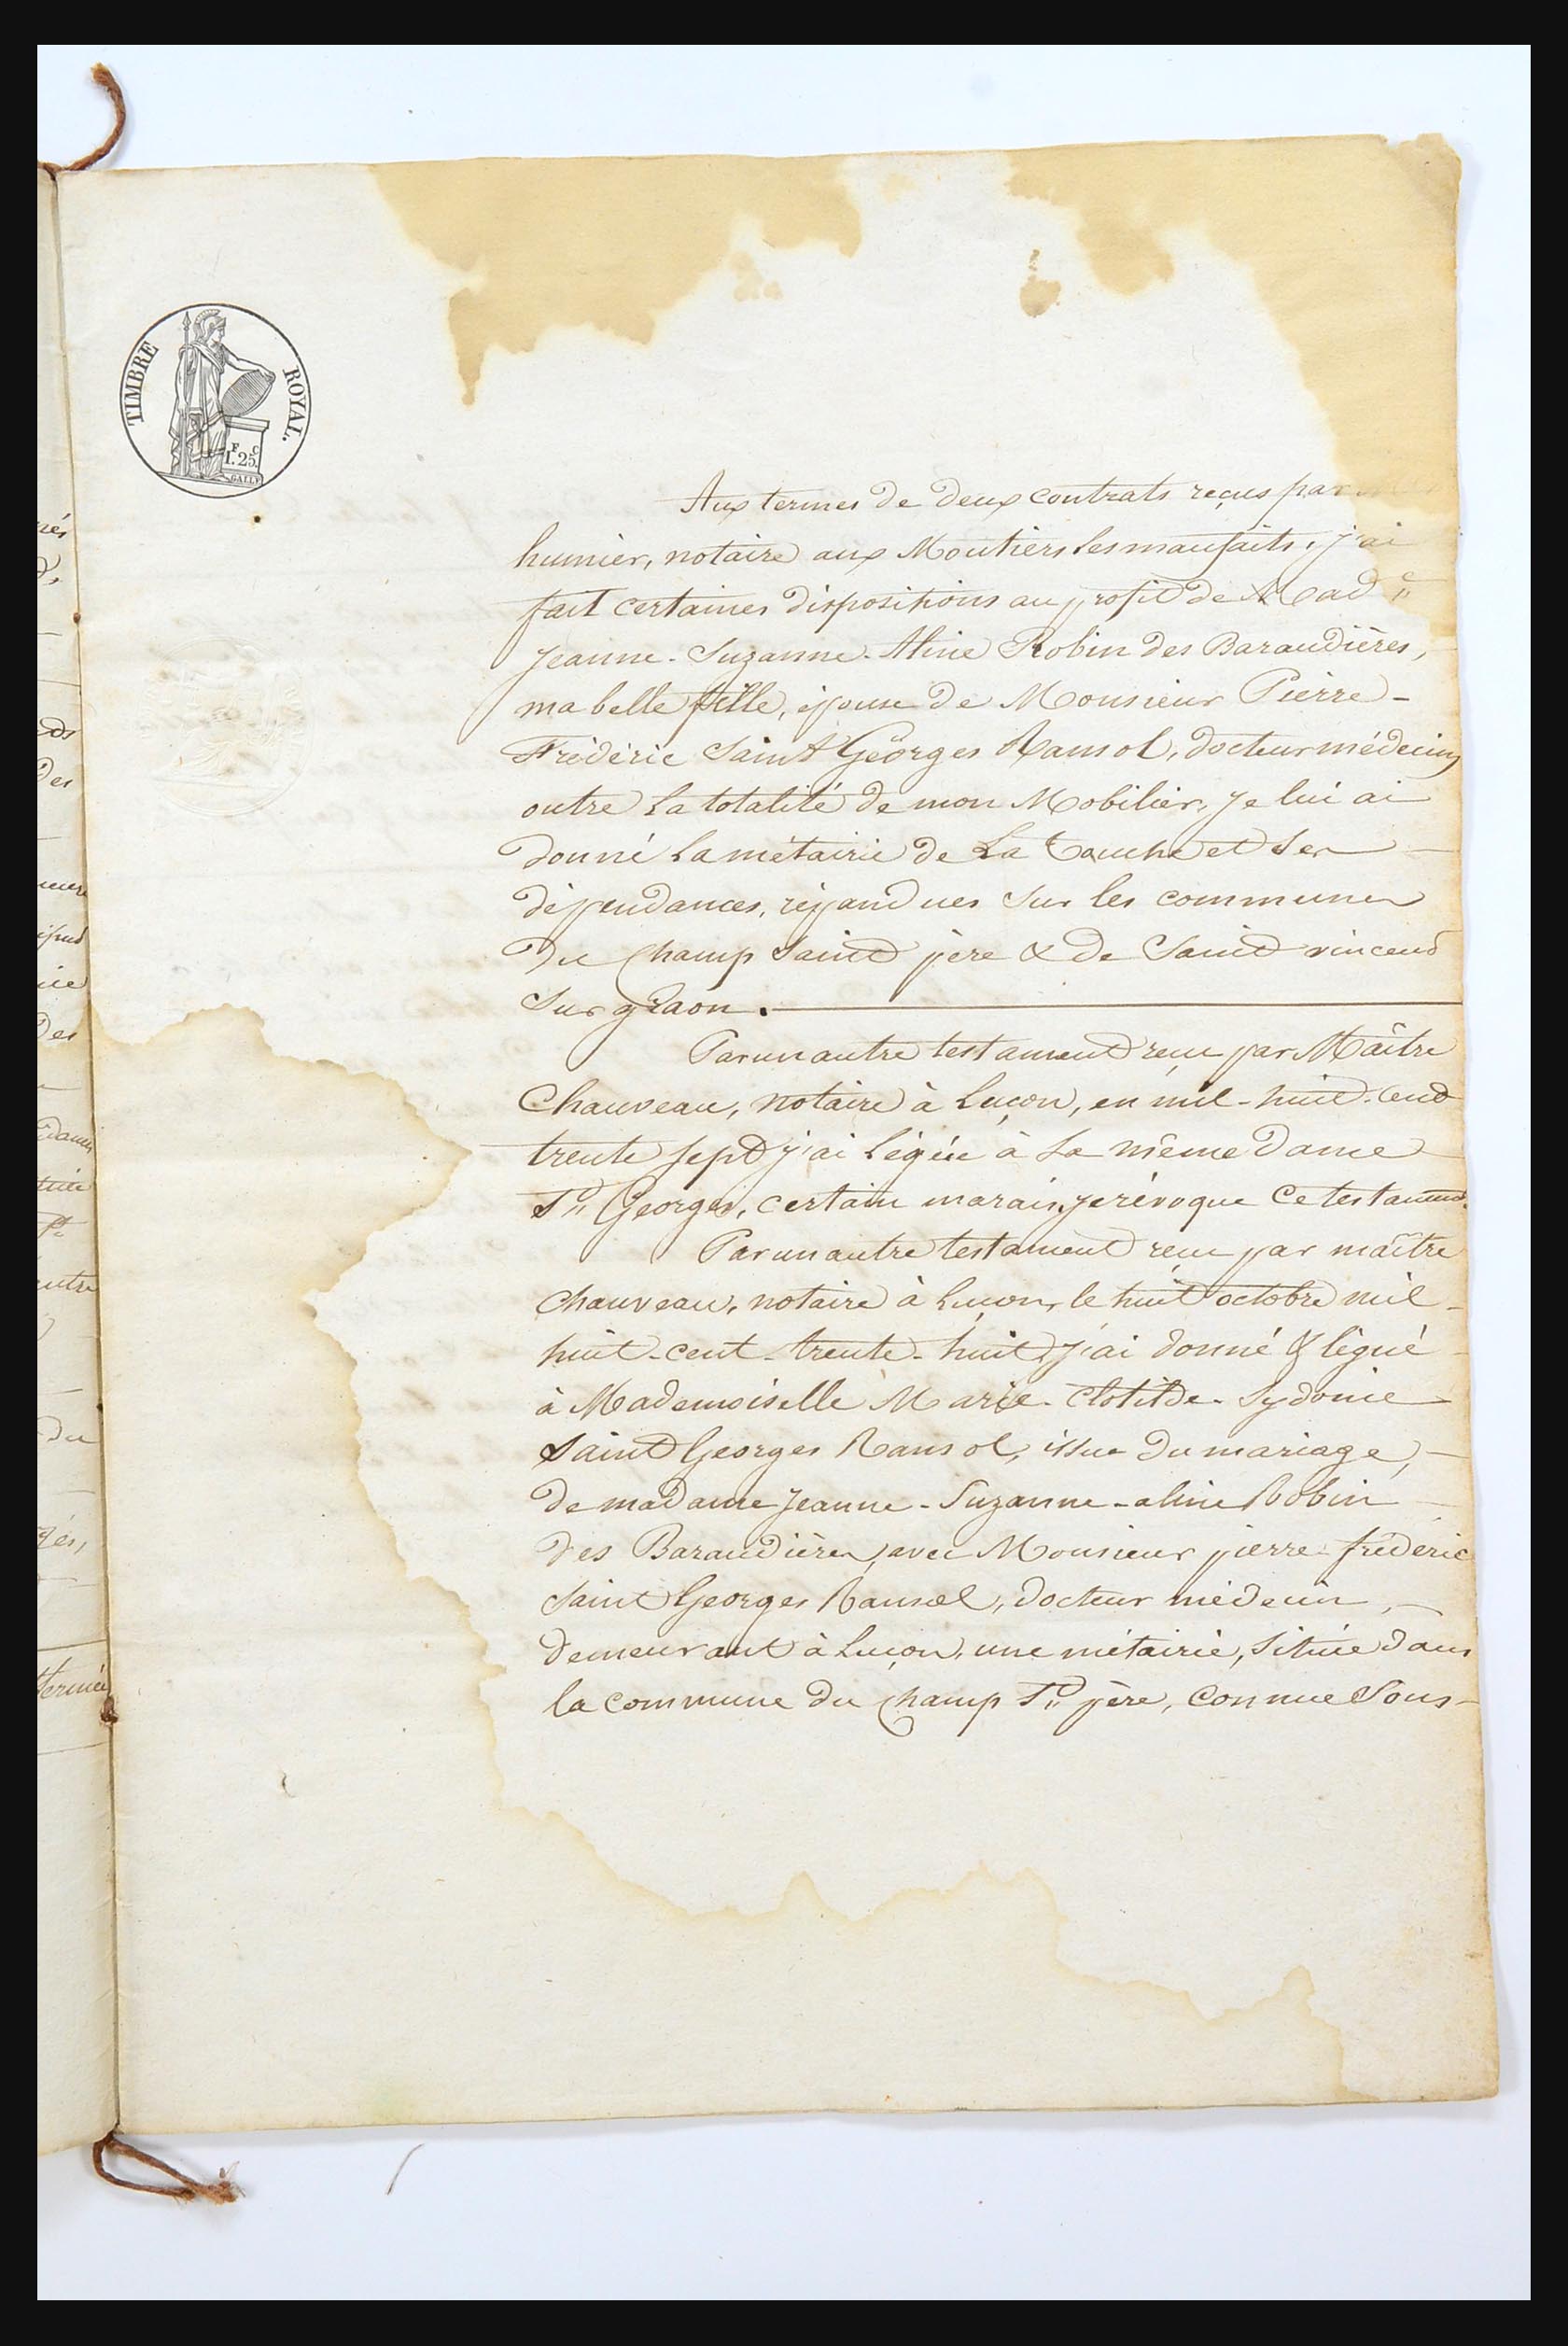 TIMBRE ROYAL.
F C
1.25
GALLE
Aux termes de deux contrats reçus par
humier, notaire aux Moutiers les maufaits, j'ai
fait certaines dispositions au profit de Mad.e
Jeanne-Suzanne-Aline Robin des Baraudières,
ma belle fille, épouse de Monsieur Pierre-
Frédéric Saint Georges Ransol, docteur médecin,
outre la totalité de mon Mobilier, je lui ai
donné la métairie de La Touche et ses
dépendances, répandues sur les communes
du Champ Saint père & de Saint vincent
sur graon.
Par un autre testament reçu par Maître
Chauveau, notaire à Luçon, en mil-huit-cent
trente sept j'ai légué à la même Dame
St Georges, certain marais, je révoque ce testament.
Par un autre testament reçu par maître
chauveau, notaire à Luçon, le huit octobre mil-
huit-cent-trente-huit, j'ai donné & légué
à Mademoiselle Marie-Clotilde-Sydonie
Saint Georges Ransol, issue du mariage,
de madame Jeanne-Suzanne-aline Robin
des Baraudières, avec Monsieur pierre frédéric
Saint Georges Ransol, docteur médecin,
demeurant à Luçon, une métairie, située dans
la commune du champ St père, connue sous-